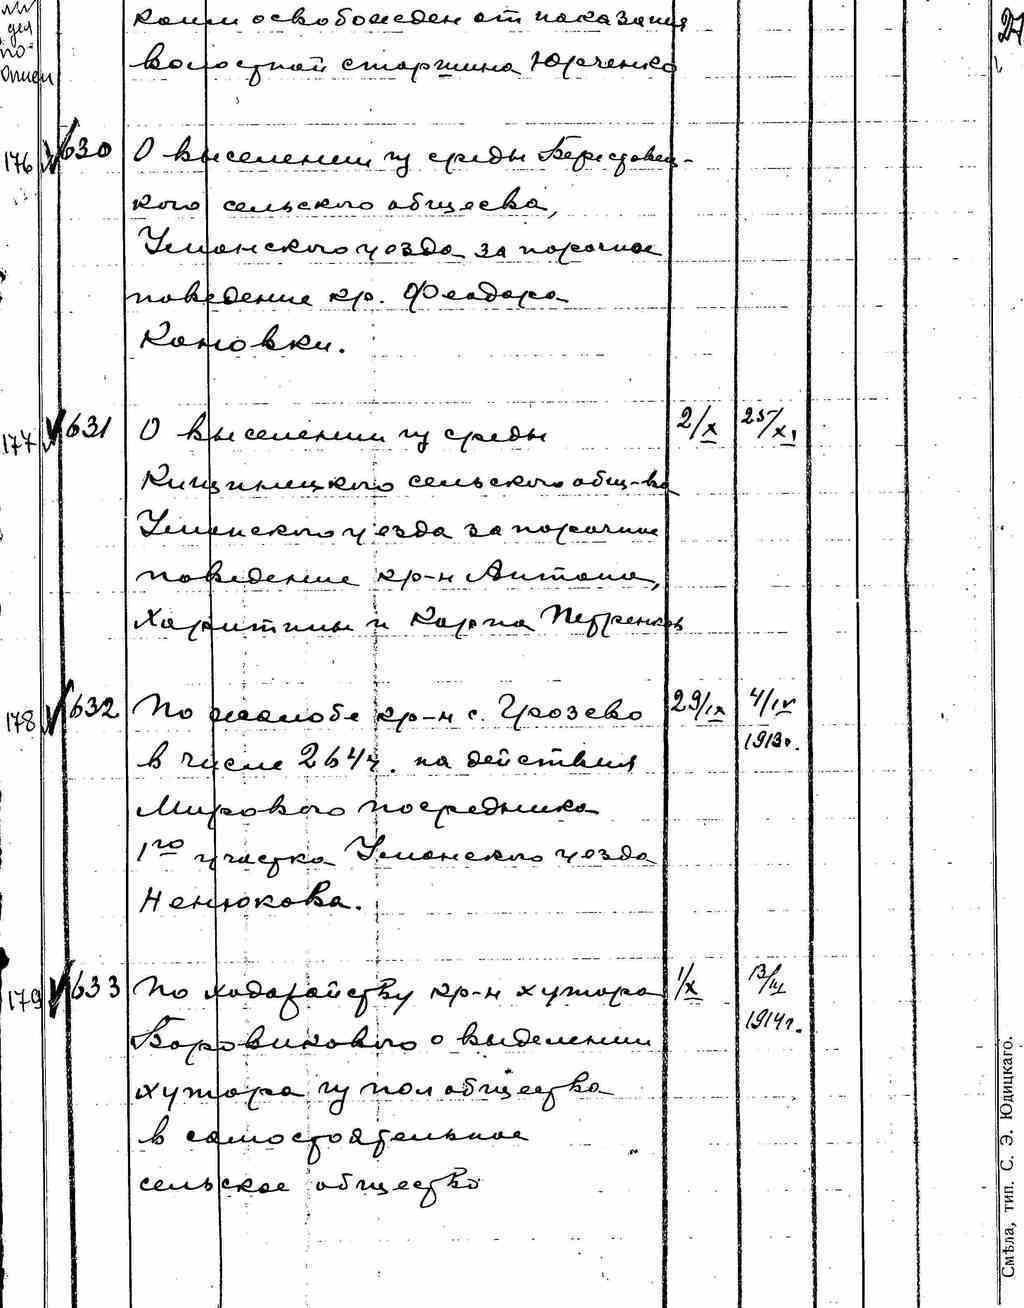 для
по-
описи
коим освобожден от наказания
волостной старшина Юрченко
176 630 О выселении из среды Берестовец-
кого сельского общесва,
Уманского уезда за порочное
поведение кр. Феодора
Коновки.
177 631 О выселении из среды 2/X 25/XI
Кищинецкого сельского общ-ва
Уманского уезда за порочное
поведение кр-н Антона,
Харитины и Карпа Петренков
178 632 По жалобе кр-н с. Грозево 29/IX 4/IV
1913г.
в числе 264 ч. на действия
Мирового посредника
1го участка Уманского уезда
Ненюкова.
179 633 По ходатайству кр-н хутора 1/X 13/III
1914г.
Боровикового о выделении
хутора из пол общества
в самостоятельное
сельское общество
Смѣла, тип. С. Э. Юдицкаго.